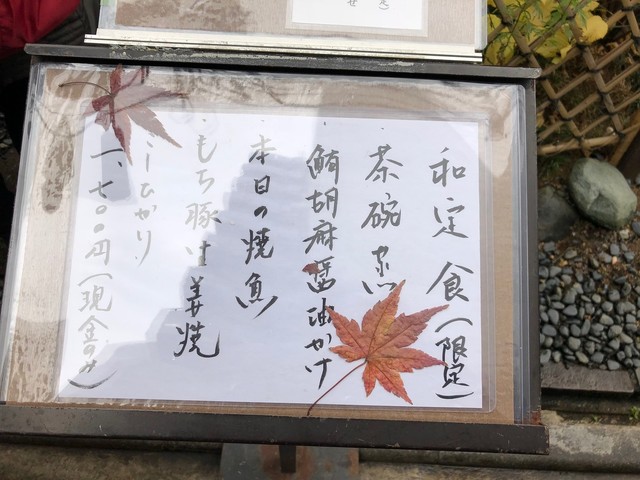 和定食(限定)
茶碗蒸し
・鮪胡麻醤油かけ
・本日の焼魚
・もち豚生姜焼
・こしひかり
一、七〇〇円(現金のみ)